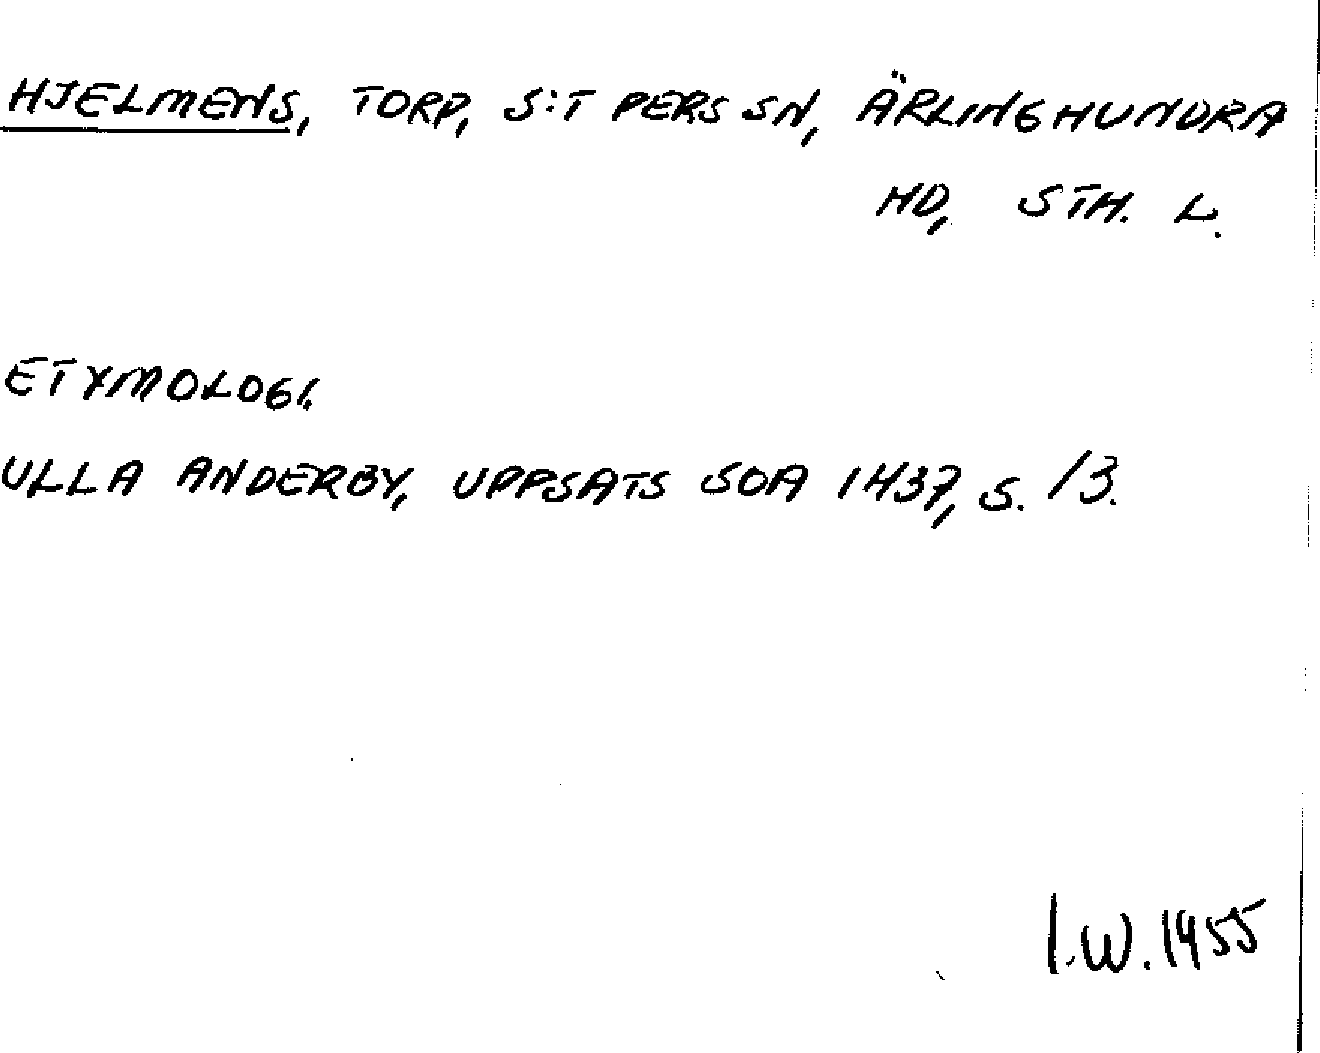 HJELMENS, TORP, S:T PERS SN, ÄRLINGHUNDRA
HD, STH. L.
ETYMOLOGI.
ULLA ANDERBY, UPPSATS SOA 1437, S. 13.
I.W. 1955